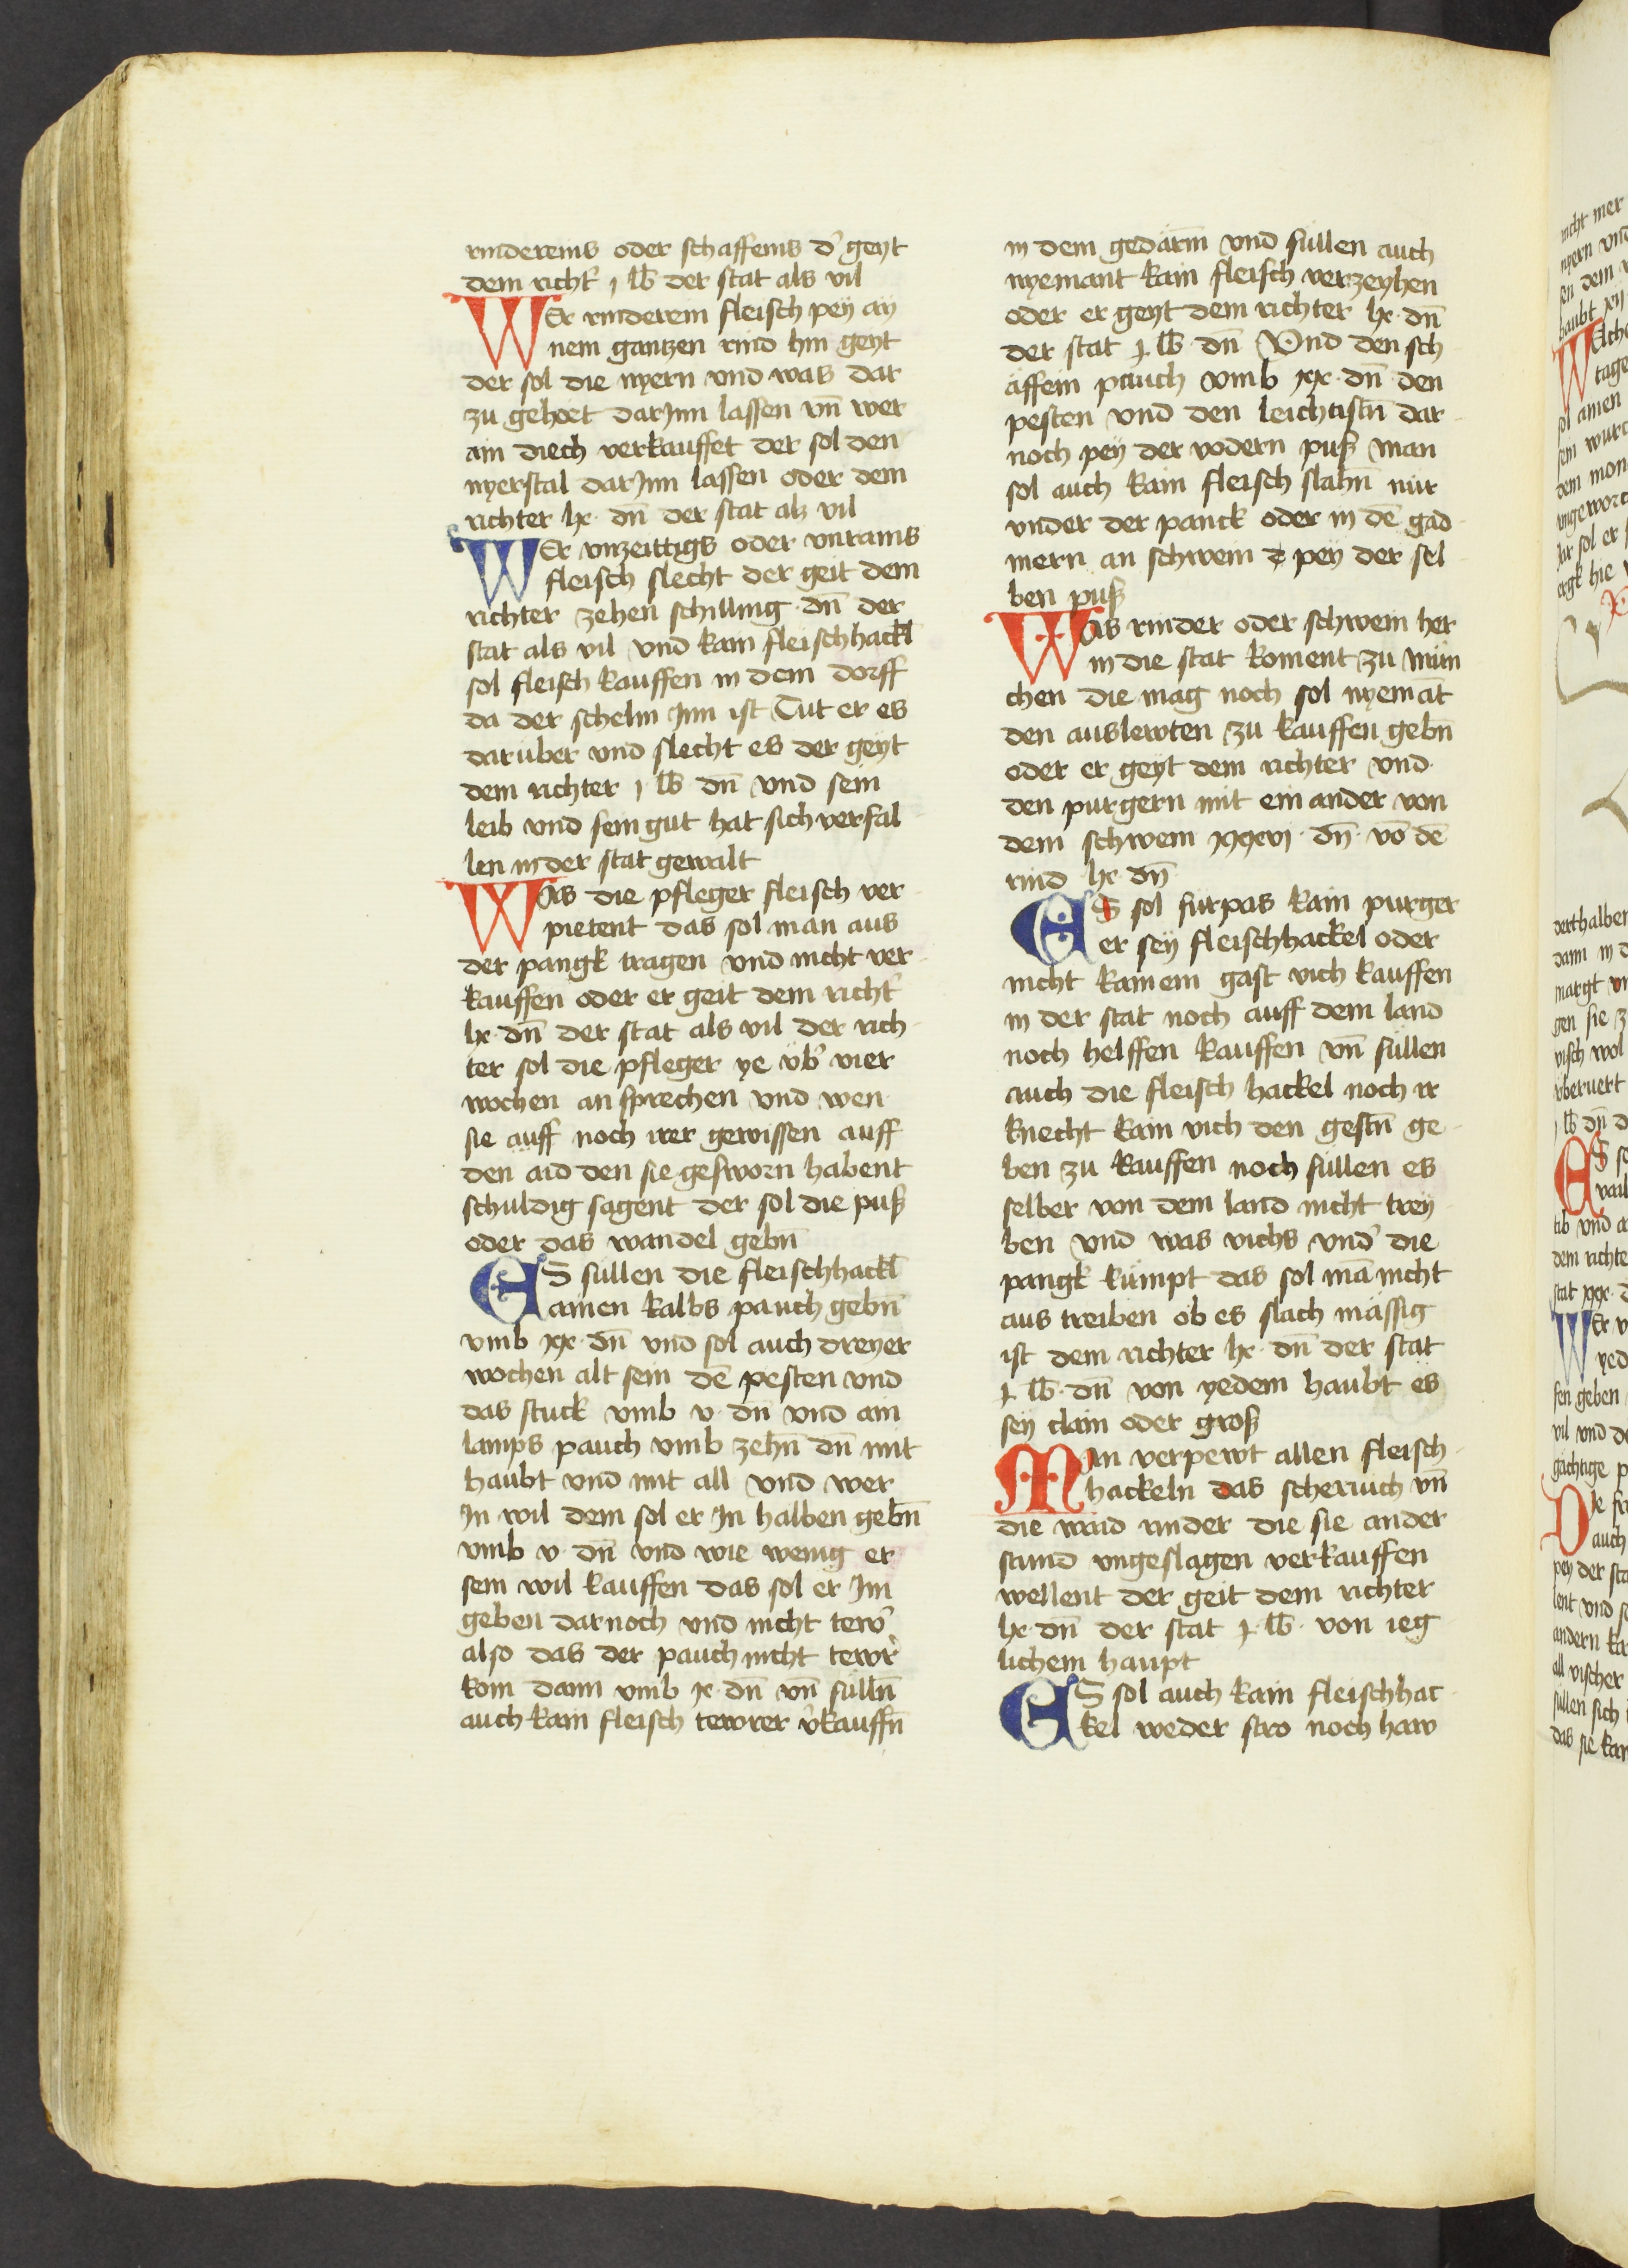 rindereins oder schaffeins d᷑ geyt
dem richt᷑ j lb der stat als vil
WEr rinderein fleisch pey ay
nem gantzen rind hin geyt
der sol die nyern vnd was dar
zu gehoet darJnn lassen vn̄ wer
ain diech verkauffet der sol den
nyerstal darJnn lassen oder dem
richter lx · dn̄ der stat als vil
WEr vnzeittigs oder vnrains
fleisch slecht der geit dem
richter zehen schilling · dn̄ der
stat als vil vnd kain fleischhackl
sol fleisch kauffen in dem dorff
da der schelm Jnn ist Tut er es
daruber vnd slecht es der geyt
dem richter j lb dn̄ vnd sein
leib vnd sein gut hat sich verfal
len in der stat gewalt
WAs die pfleger fleisch ver
pietent das sol man aus
der pangk tragen vnd nicht ver
kauffen oder er geit dem richt᷑
lx · dn̄ der stat als vil der rich
ter sol die pfleger ye vb᷑ vier
wochen an sprechen vnd wen
sie auff noch irer gewissen auff
den aid den sie gesworn habent
schuldig sagent der sol die puß
oder das wandel gebn̄
ES sullen die fleischhackl
ainen kalbs pauch gebn̄
vmb xx · dn̄ vnd sol auch dreyer
wochen alt sein dē pesten vnd
das stuck vmb v · dn̄ vnd ain
lamps pauch vmb zehn̄ dn̄ mit
haubt vnd mit all vnd wer
Jn wil dem sol er Jn halben gebn̄
vmb v · dn̄ vnd wie wenig er
sein wil kauffen das sol er Jm
geben dar noch vnd nicht tewr᷑
also das der pauch nicht tewr᷑
kom dann vmb x · dn̄ vn̄ sulln̄
auch kain fleisch tewrer v᷑kauffn̄
in dem gedarm̄ vnd sullen auch
nyemant kain fleisch verzeyhen
oder er geyt dem richter lx · dn̄
der stat j · lb · dn̄ Vnd den sch
affein pauch vmb xx · dn̄ den
pesten vnd den leichtistn̄ dar
noch pey der vodern puß man
sol auch kain fleisch slahn̄ nür
vnder der panck oder in dē gad
mern an schwein pey der sel
ben puß
WAs rinder oder schwein her
in die stat koment zu Mün
chen die mag noch sol nyemāt
den auslewten zu kauffen gebn̄
oder er geyt dem richter vnd
den purgern mit ein ander von
dem schwein xxxvj · dn̄ · vō dē
rind lx · dn̄
ES sol furpas kain purger
er sey fleischhackel oder
nicht kainem gast vich kauffen
in der stat noch auff dem land
noch helffen kauffen vn̄ süllen
auch die fleisch hackel noch ir
knecht kain vich den gestn̄ ge
ben zu kauffen noch süllen es
selber von dem land nicht trey
ben vnd was vichs vnd᷑ die
pangk kümpt das sol mā nicht
aus treiben ob es slach mässig
ist dem richter lx · dn̄ der stat
j · lb · dn̄ von yedem haubt es
sey clain oder groß
MAn verpewt allen fleisch
hackeln das schervich vn̄
die waid rinder die sie ander
stund vngeslagen verkauffen
wellent der geit dem richter
lx · dn̄ der stat j · lb · von ieg
lichem haupt
ES sol auch kain fleischhac
kel weder stro noch haw